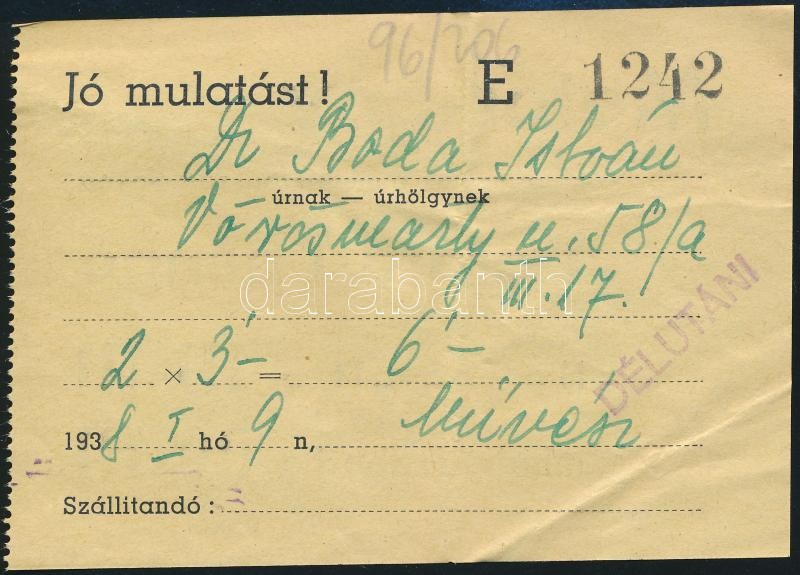 96/206
Jó mulatást! E 1242
Dr Boda István
úrnak — úrhölgynek
Vörösmarty u. 58/a
III. 17.
darabanth
2 × 3'- = 6'-
DÉLUTÁNI
1938 I hó 9 n, Művész
Szállitandó :